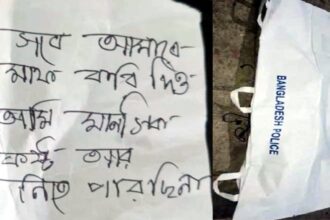 সবে আমাকে
মাফ করি দিও
আমি মানসিক
কষ্ট আর
নিতে পারছিনা
BANGLADESH POLICE